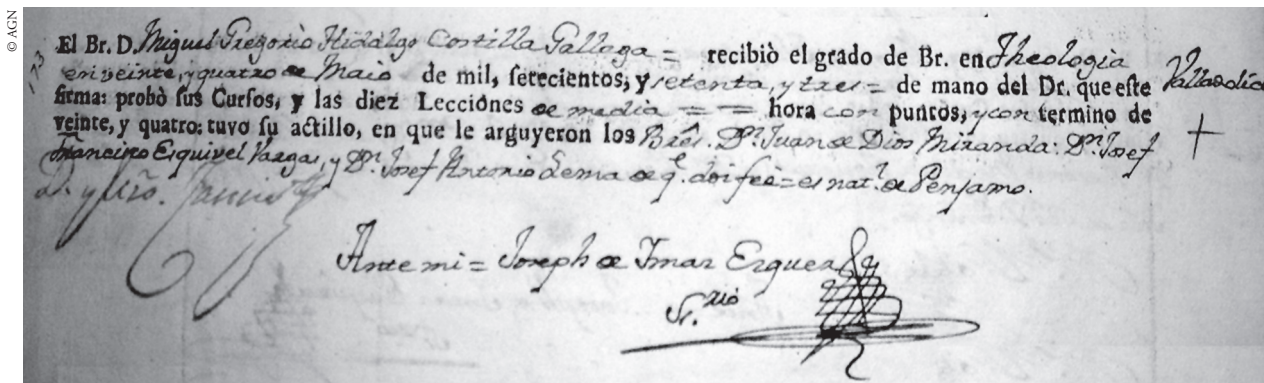 © AGN
173
El Br. D. Miguel Gregorio Hidalgo Costilla Gallaga = recibiò el grado de Br. en Theologia
en veinte, y quatro de Maio de mil, setecientos, y setenta, y tres = de mano del Dr. que este Valladolid
firma: probò sus Cursos, y las diez Lecciones de media = = hora con puntos, y con termino de
veinte, y quatro: tuvo su actillo, en que le arguyeron los Brẽs. Dn. Juan de Dios Miranda: Dn. Josef
Francisco Esquivel Vargas, y Dn. Josef Antonio Lema de qe. doi feè = es natl. de Penjamo.
D. y Mrõ.
Ante mi = Joseph de Imas Esquer
Srio